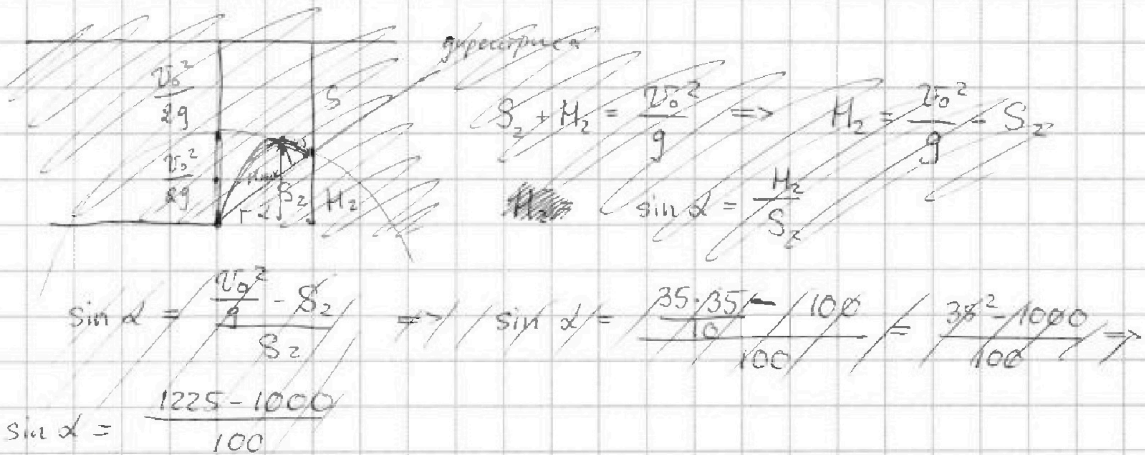 директриса
v₀²/2g
S
S₂ + H₂ = v₀²/g => H₂ = v₀²/g - S₂
v₀²/2g
S₂
H₂
F α
sin α = H₂/S₂
sin α = (v₀²/g - S₂)/S₂ => sin α = (35·35/10 - 100)/100 = (35² - 1000)/100 =>
sin α = (1225 - 1000)/100